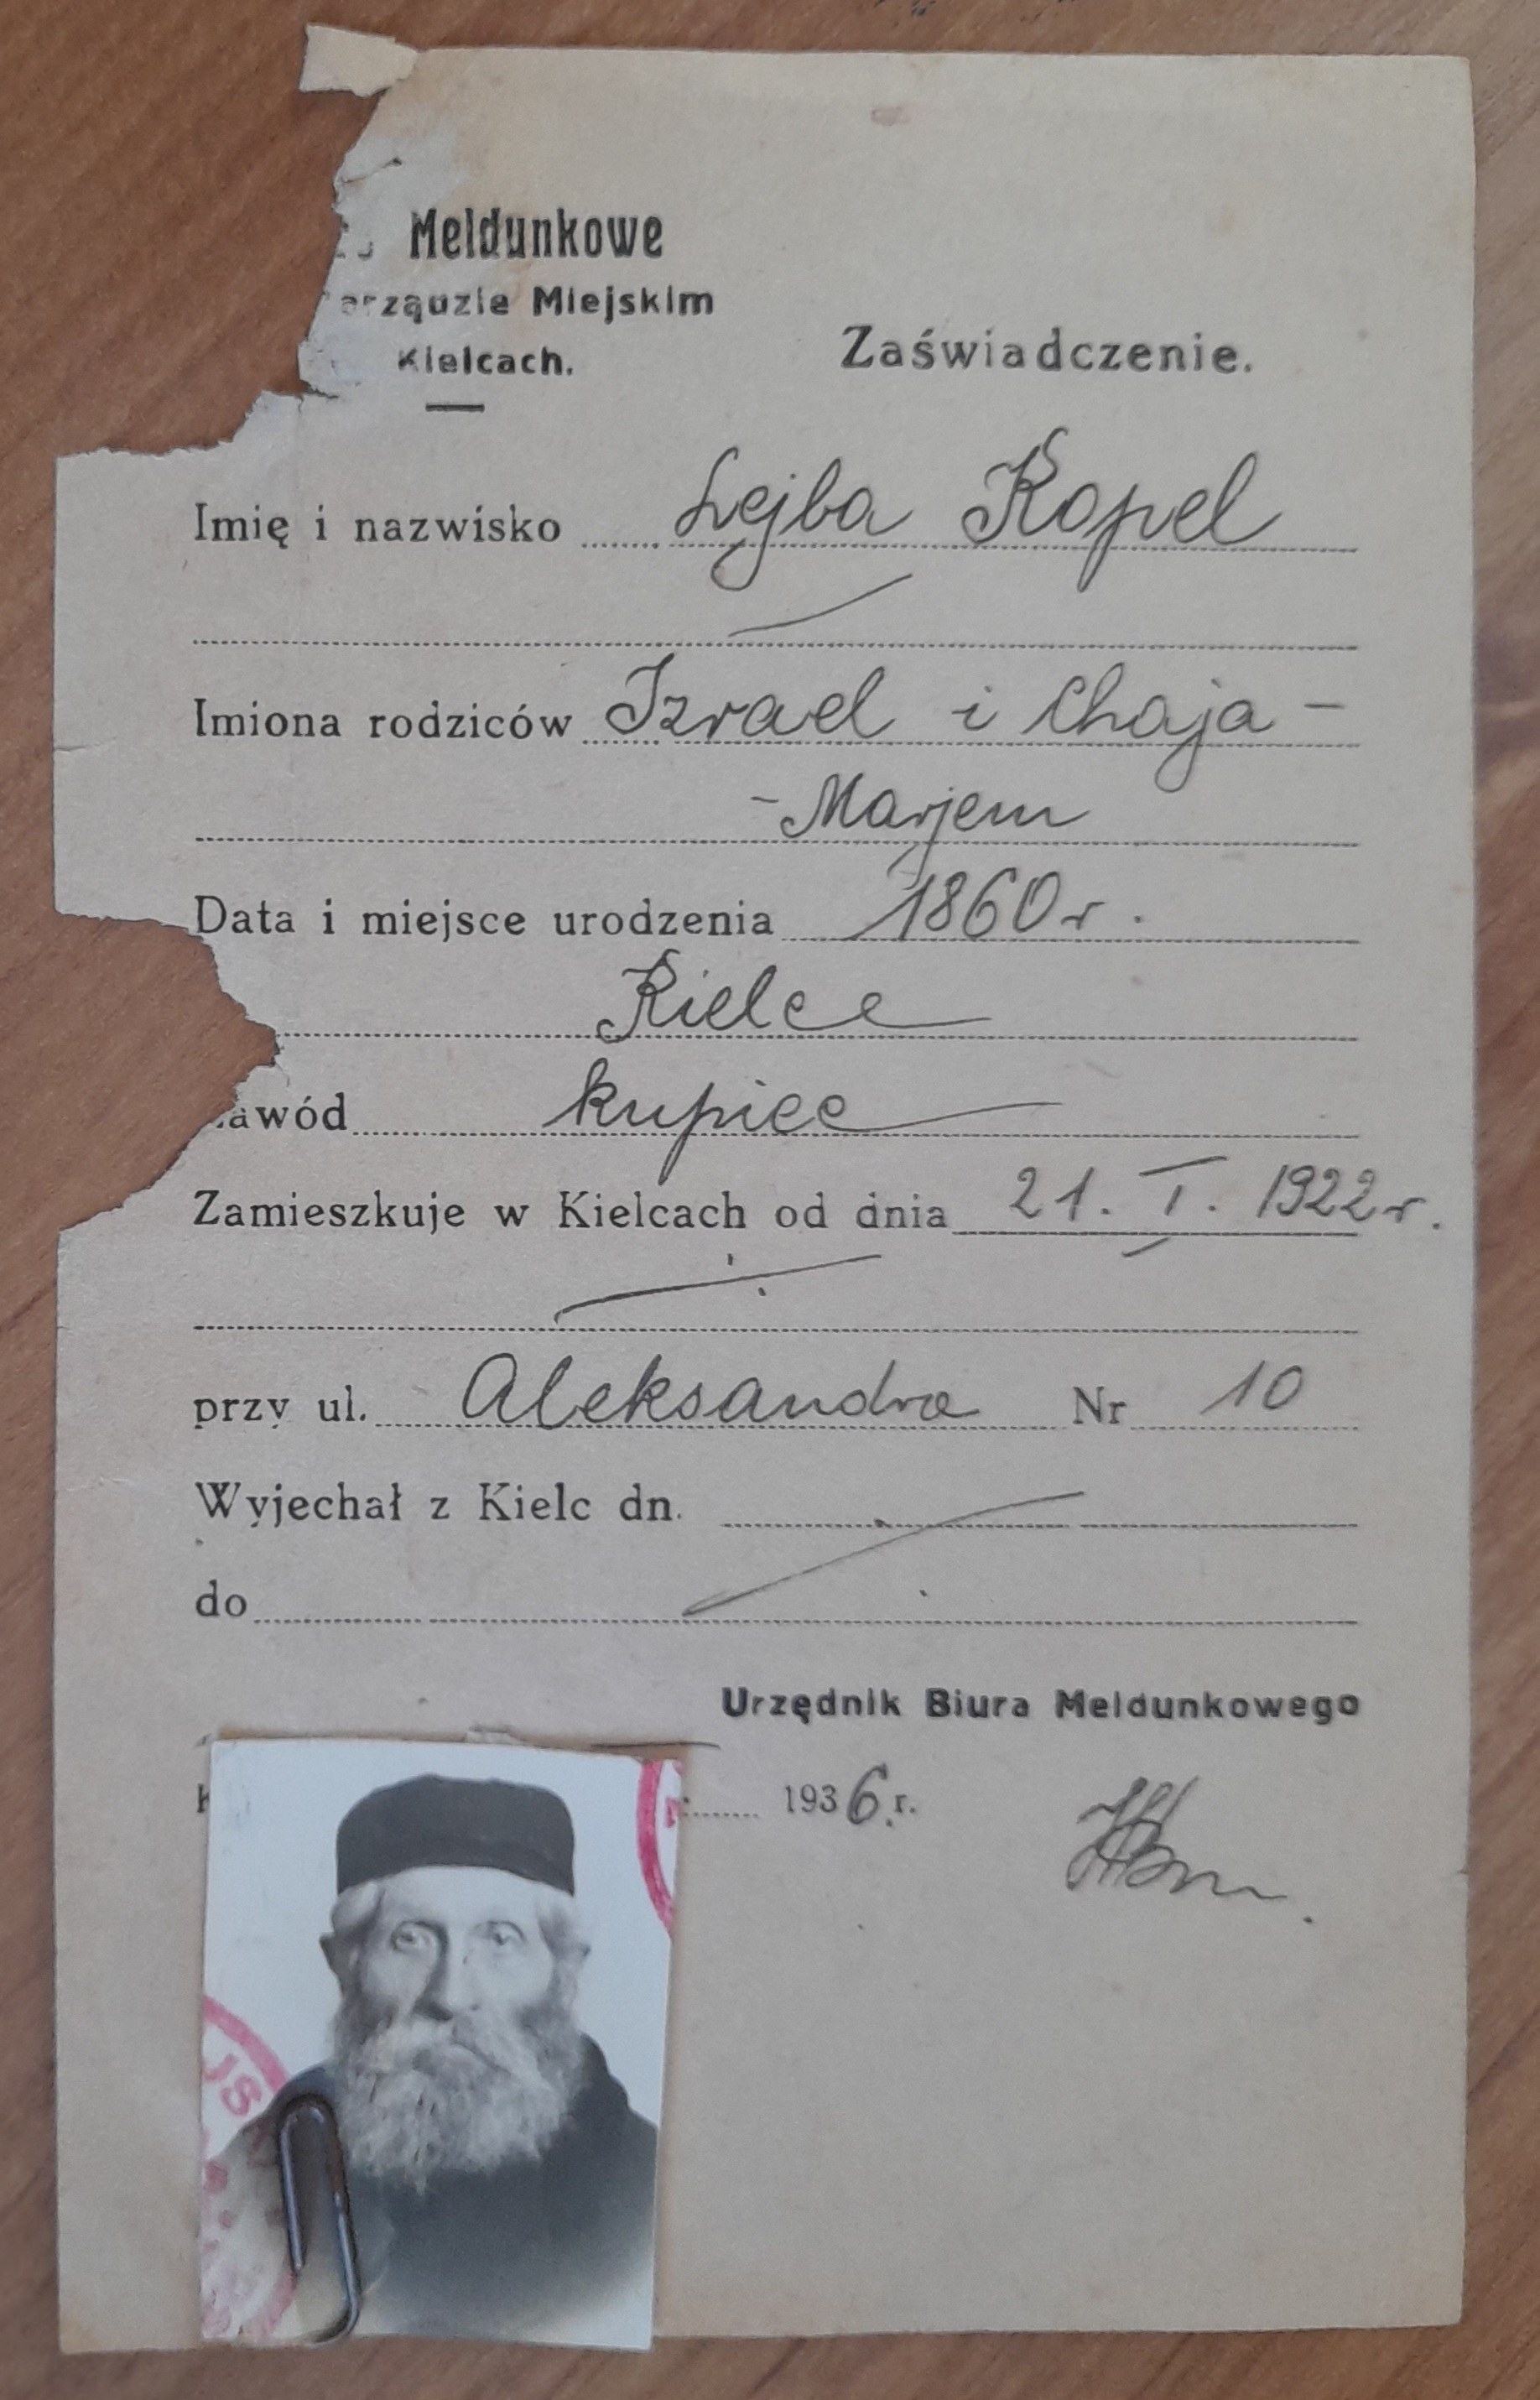 Meldunkowe
Miejskim
Kielcach.
Zaświadczenie.
Imię i nazwisko Lejba Kopel
Imiona rodziców Izrael i Chaja-
-Marjem
Data i miejsce urodzenia 1860 r.
Kielce
kupiec
Zamieszkuje w Kielcach od dnia 21. I. 1922 r.
przy ul. Aleksandra Nr 10
Wyjechał z Kielc dn.
do
Urzędnik Biura Meldunkowego
1936 r.